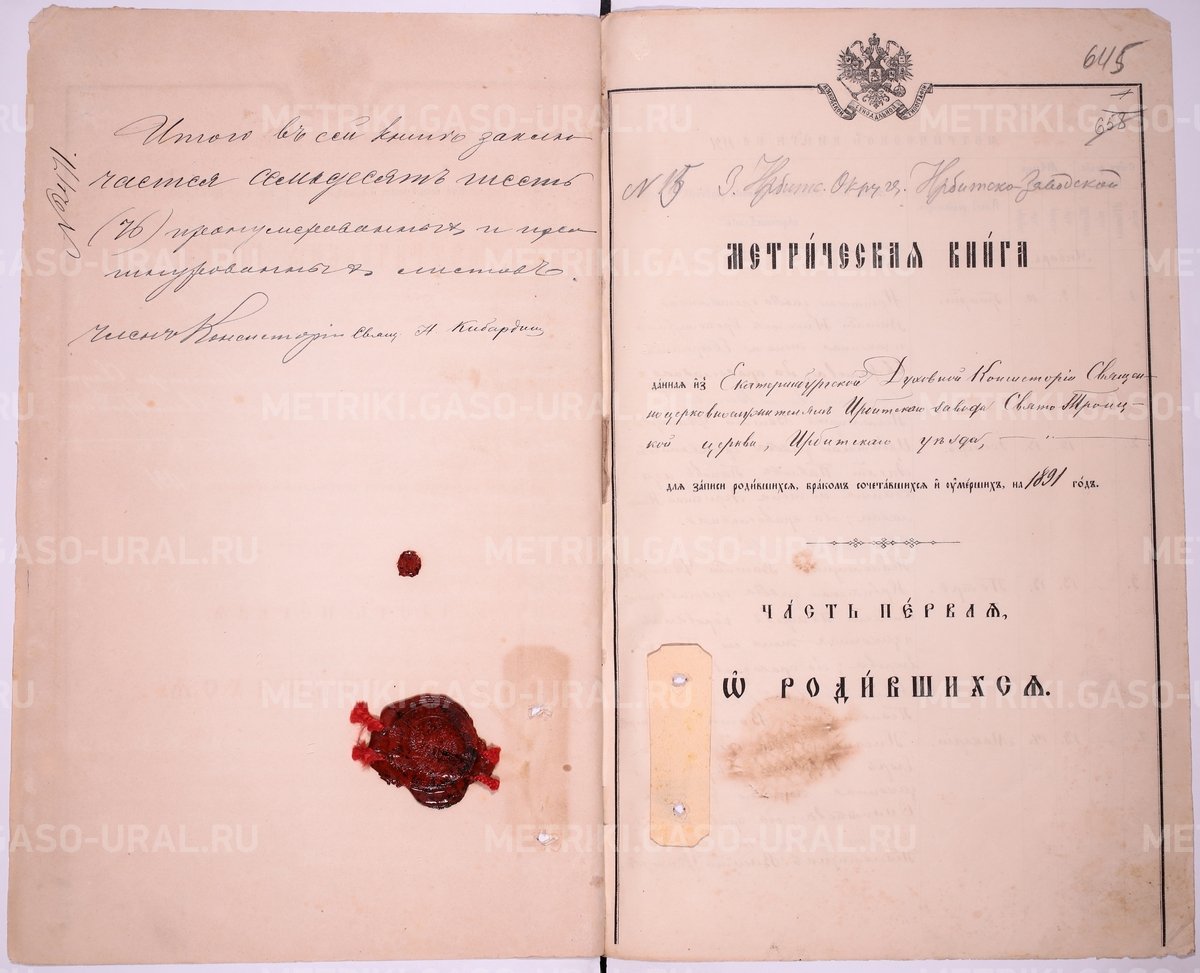 Итого въ сей книгѣ заклю
чается семьдесятъ шесть
(76) пронумерованныхъ и про
шнурованныхъ листовъ.
членъ Консисторіи Свящ. А Кибардинъ
645
1
658
N 15 3. Ирбитс. Округа. Ирбитско-Заводской
МЕТРИ́ЧЕСКАѦ КНИ́ГА
да́нная и҆з̾ Екатеринбургской Духовной Консисторіи Священ-
ноцерковнослужителямъ Ирбитскаго завода Свято Троиц-
кой церкви, Ирбитскаго уѣзда,
для за́писи роди́вшихся, бра́комъ сочета́вшихся и҆ ᲂу҆ме́ршихъ, на 1891 го́дъ.
ЧА́СТЬ ПЕ́РВАѦ,
Ѽ РОДИ́ВШИХСѦ.
METRIKI.GASO-URAL.RU